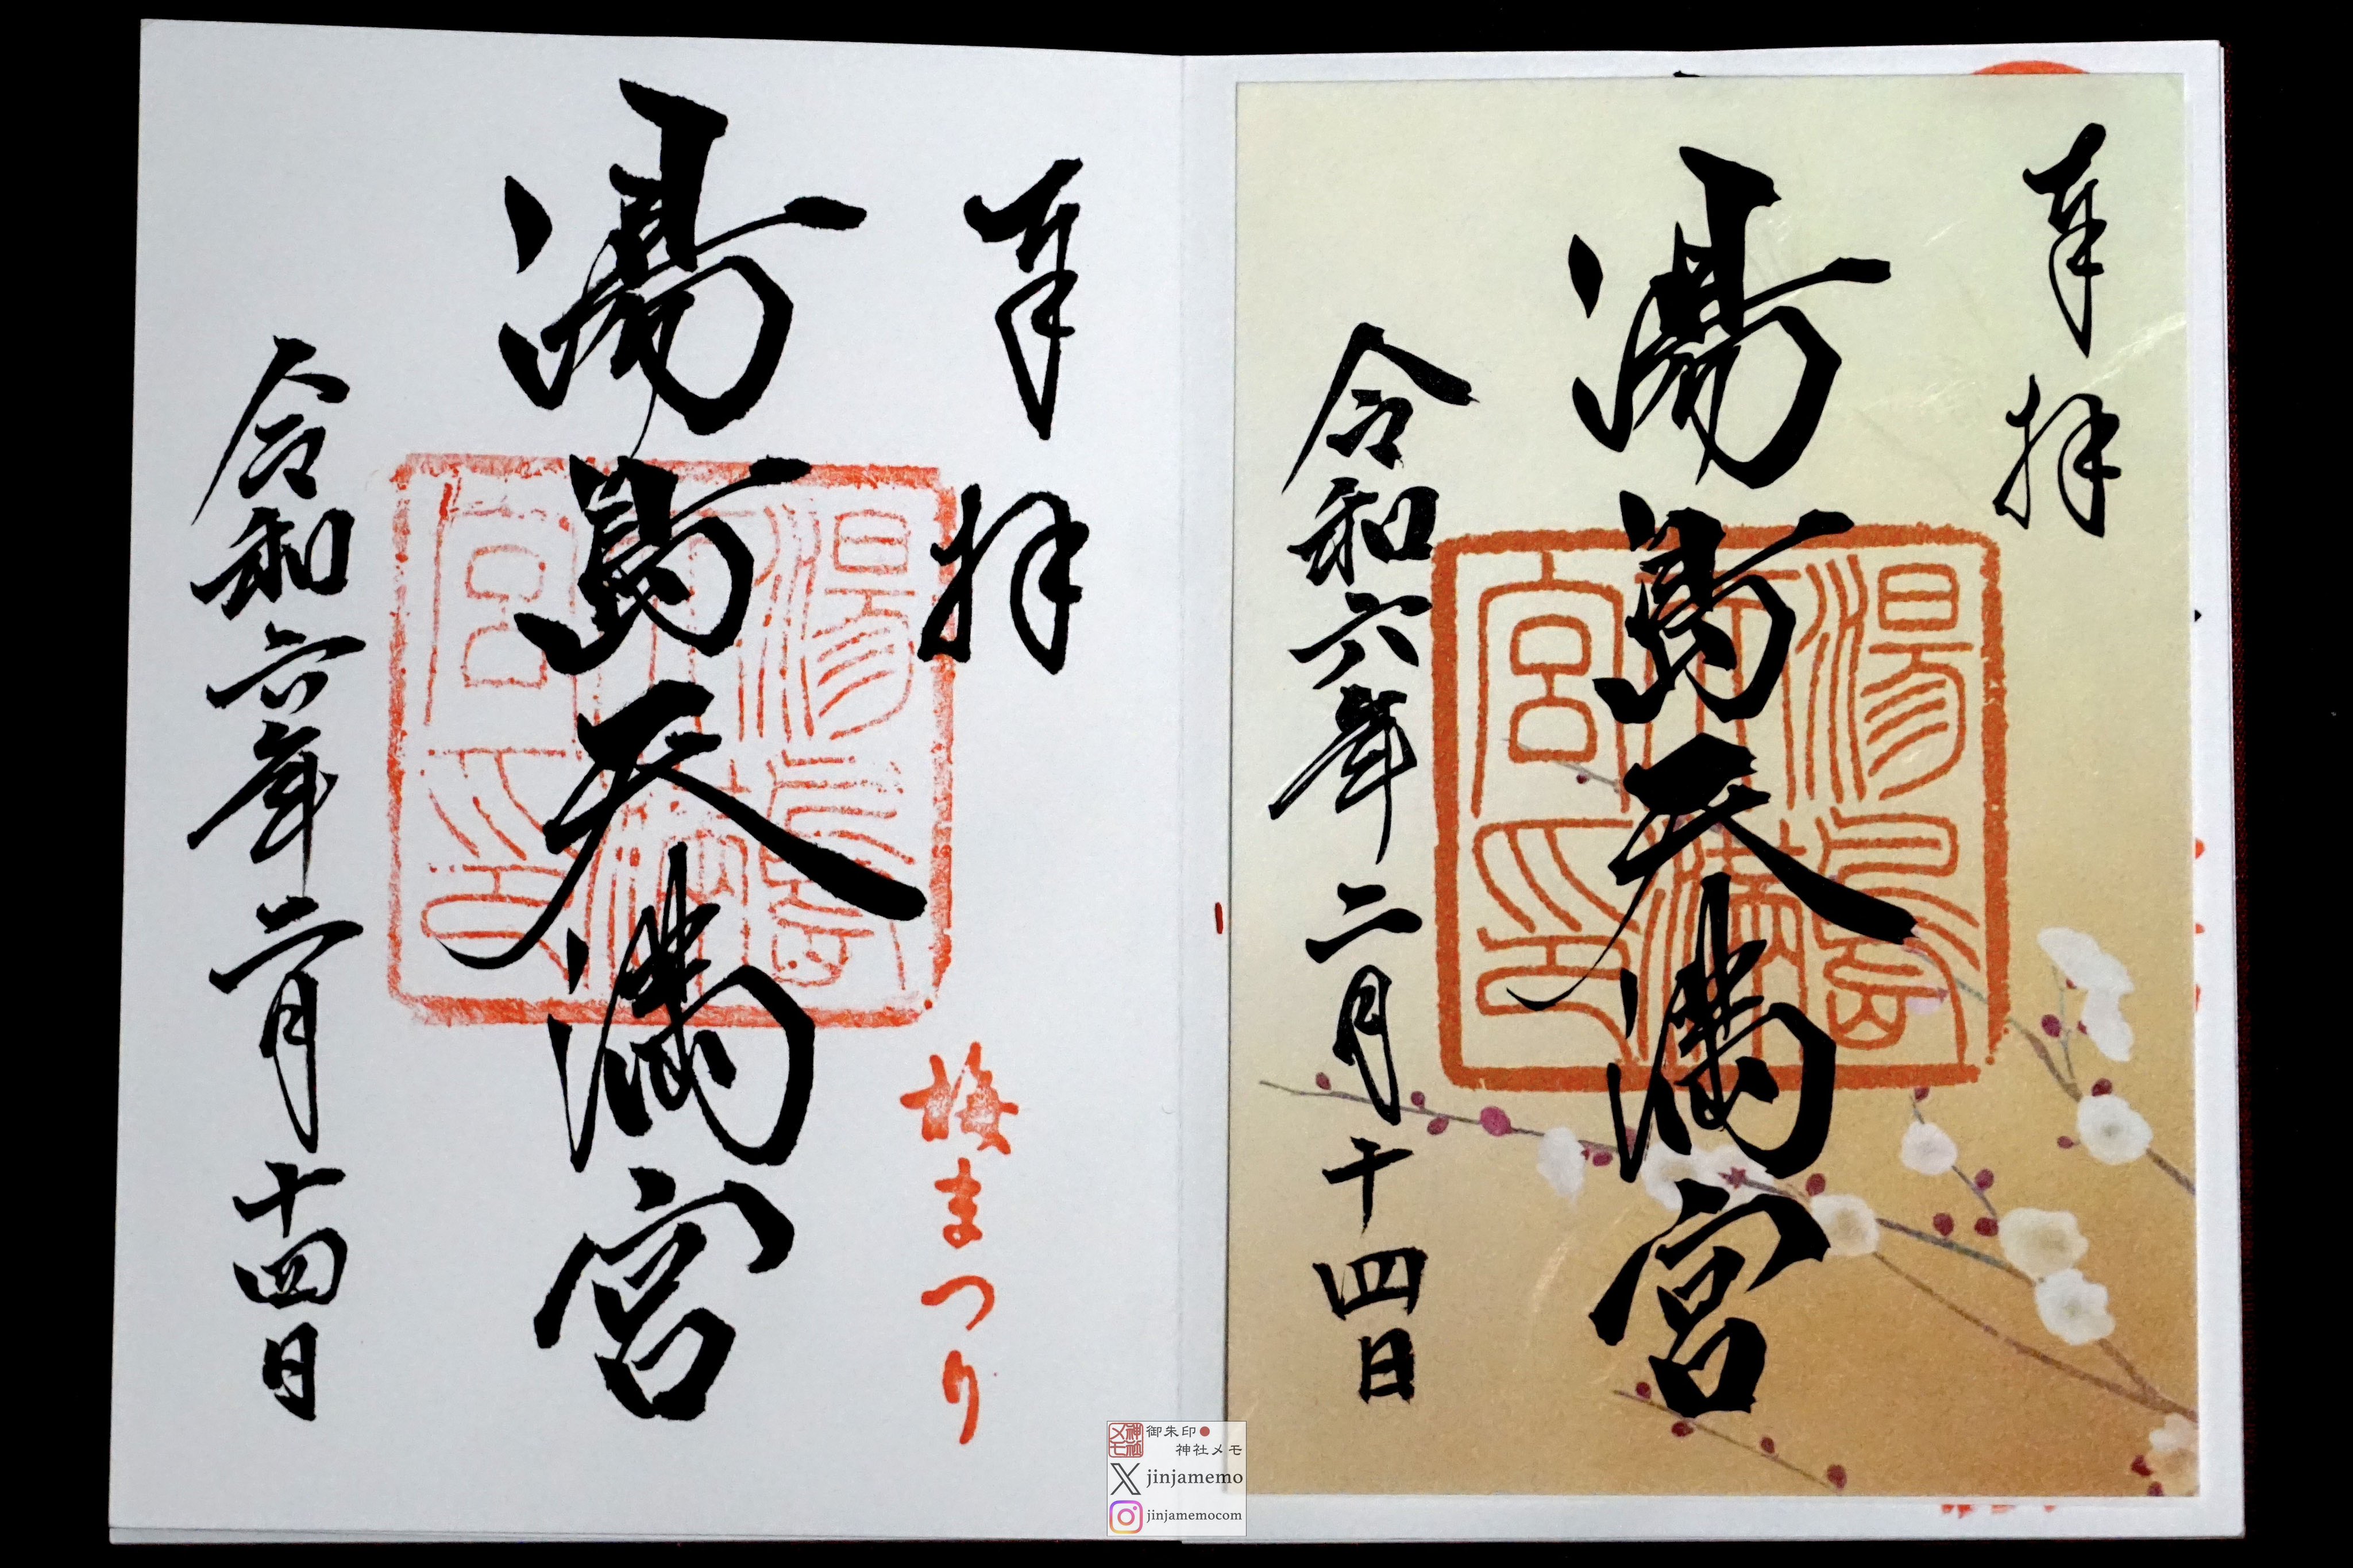 奉拝
湯島天満宮
令和六年二月十四日
湯島天満宮印
奉拝
湯島天満宮
令和六年二月十四日
湯島天満宮印
梅まつり
神社メモ
御朱印●
神社メモ
X jinjamemo
jinjamemocom